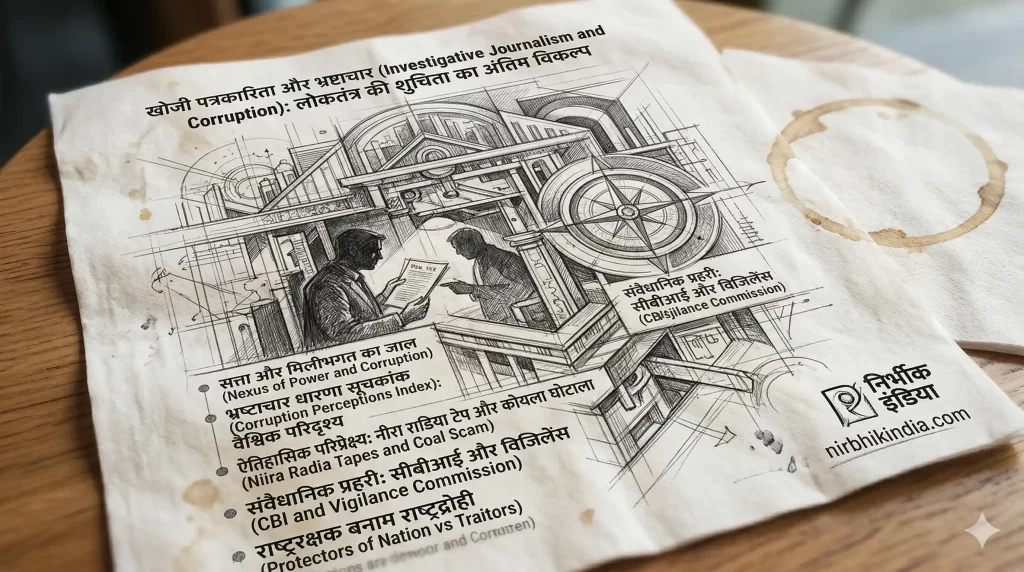 खोजी पत्रकारिता और भ्रष्टाचार (Investigative Journalism and
Corruption): लोकतंत्र की शुचिता का अंतिम विकल्प
संवैधानिक प्रहरी:
सीबीआई और विजिलेंस
(CBIsjilance Commission)
सत्ता और मिलीभगत का जाल
(Nexus of Power and Corruption)
भ्रष्टाचार धारणा सूचकांक
(Corruption Perceptions Index):
वैश्विक परिदृश्य
ऐतिहासिक परिप्रेक्ष्य: नीरा राडिया टेप और कोयला घोटाला
(Niira Radia Tapes and Coal Scam)
संवैधानिक प्रहरी: सीबीआई और विजिलेंस
(CBI and Vigilance Commission)
राष्ट्ररक्षक बनाम राष्ट्रद्रोही
(Protectors of Nation vs Traitors)
निर्भीक
इंडिया
nirbhikindia.com